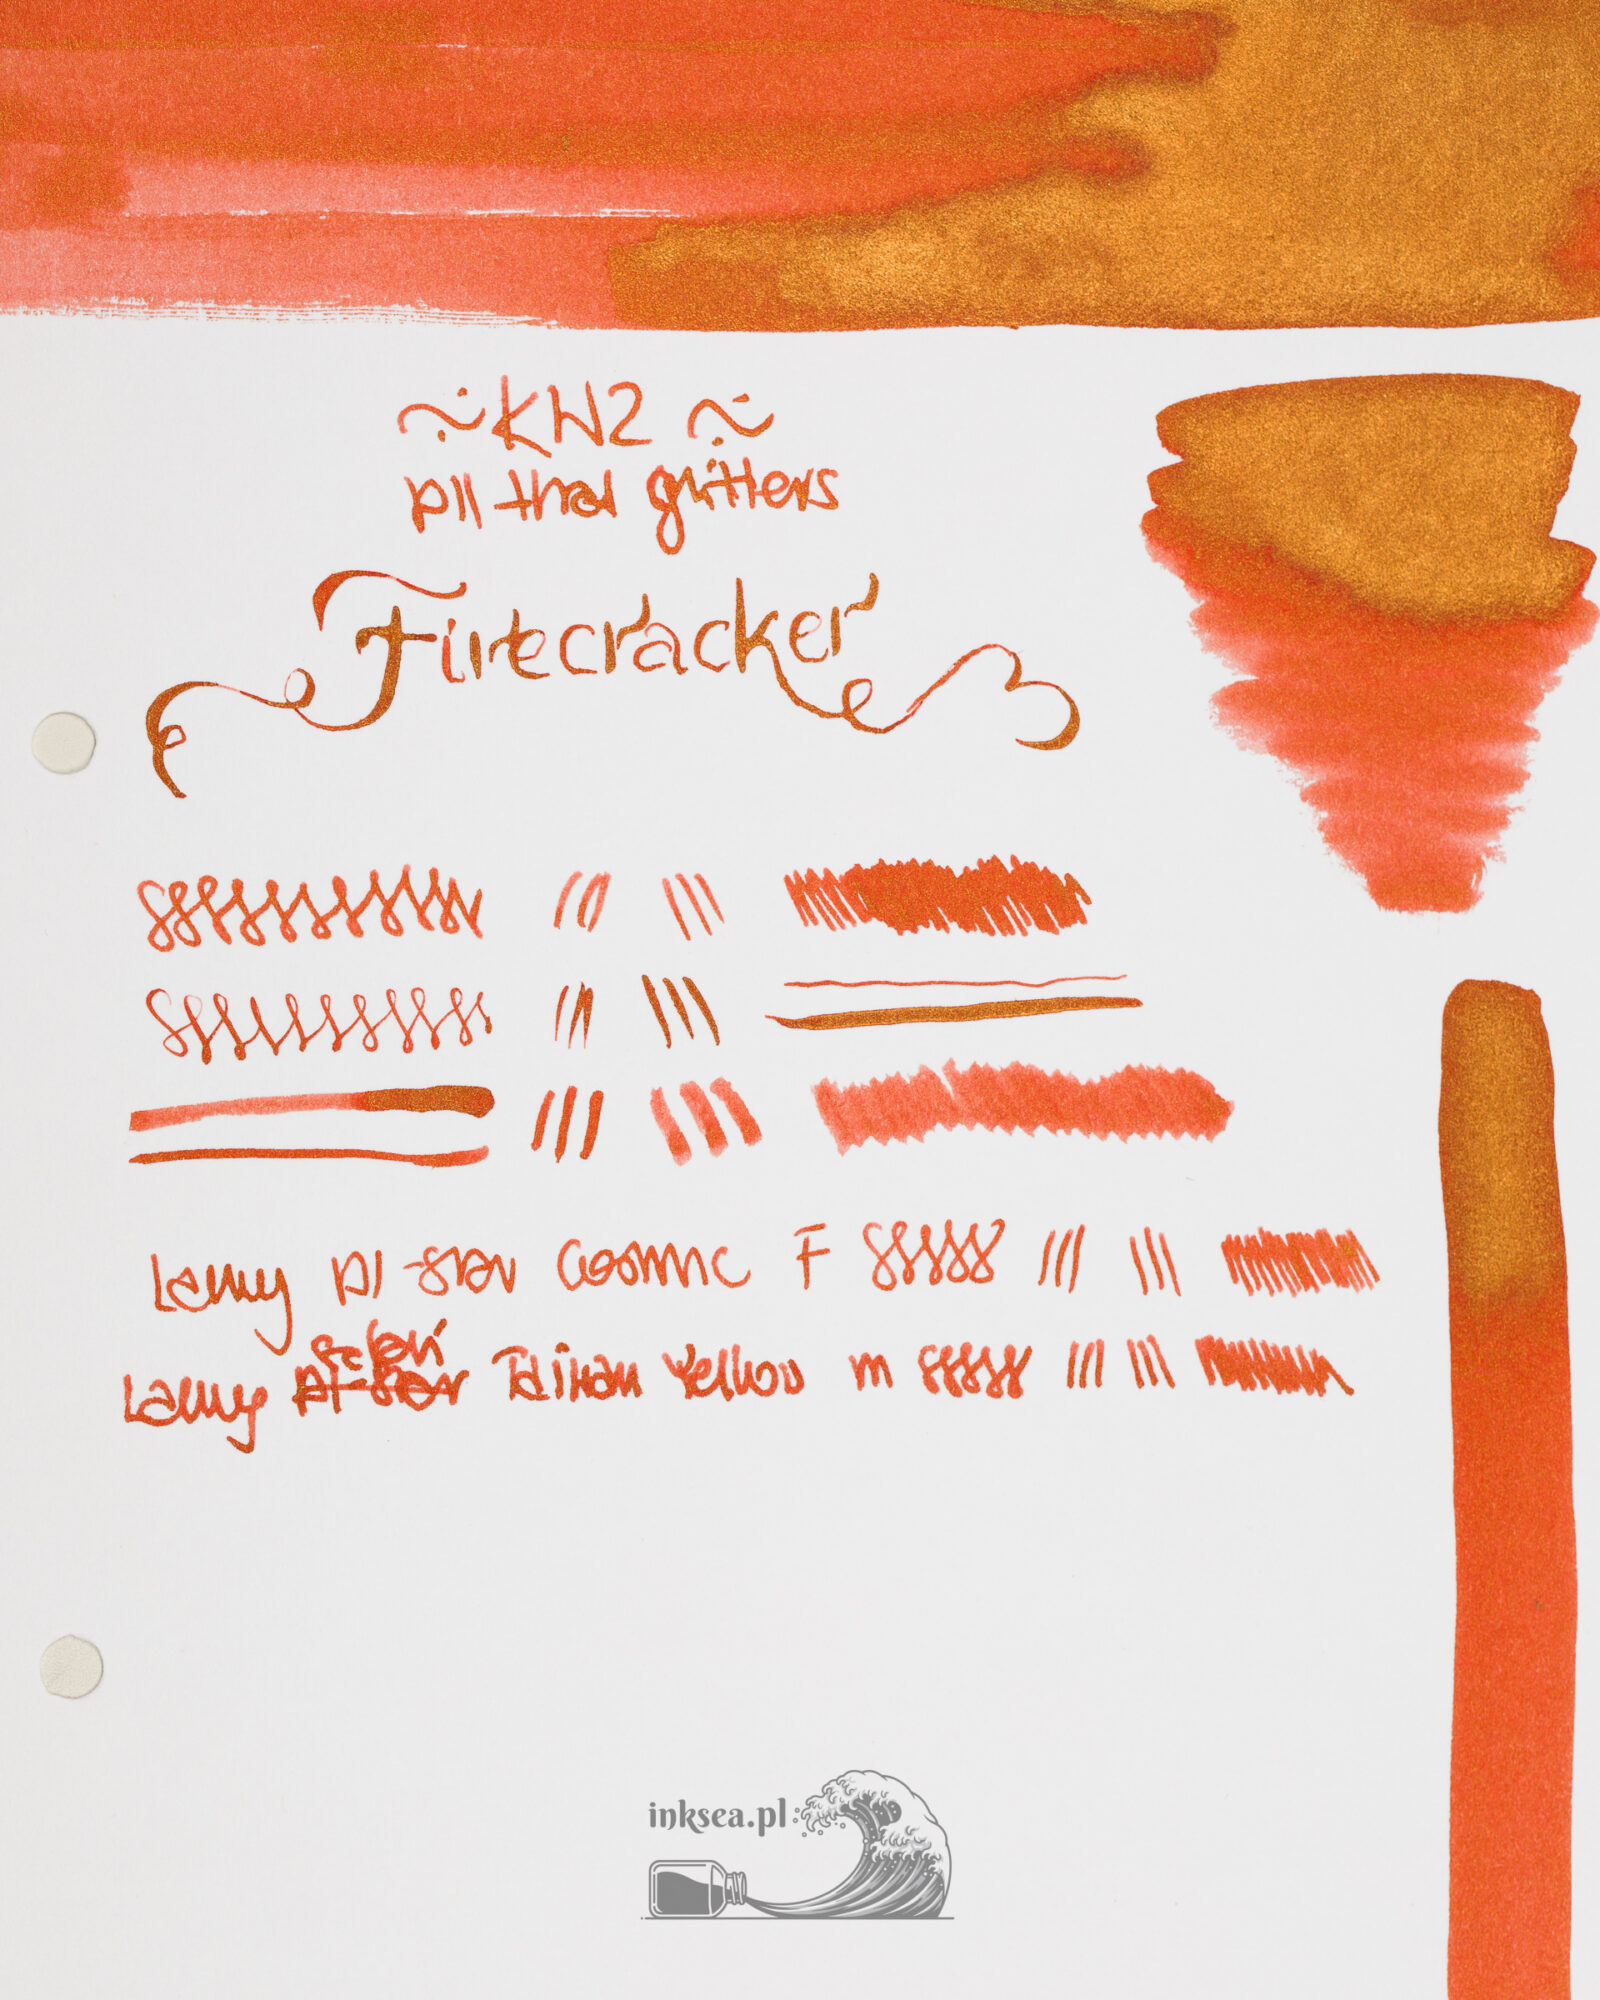 ~ KWZ ~
All that glitters
Firecracker
Lamy Al-star Cosmic F
safari
Lamy Al-star Taiwan Yellow M
inksea.pl